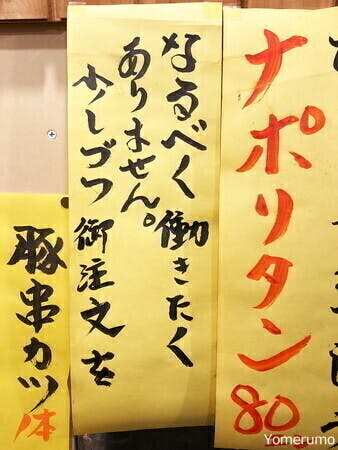 ナポリタン80
なるべく働きたく
ありません。
少しづつ御注文を
豚串カツ
Yomerumo